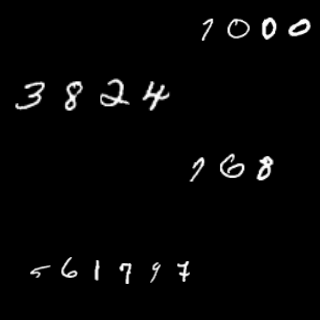 1000
3824
168
561797